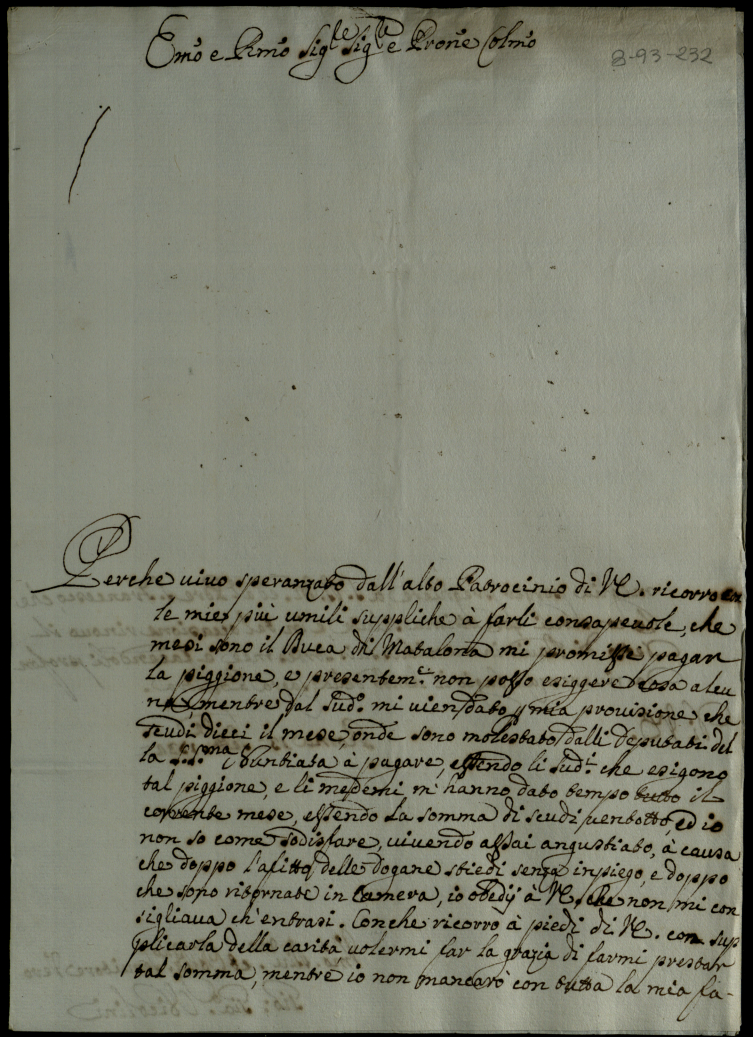 Emo e Rmo Sigre Sigre e Prone Colmo
8-93-232
Perche viuo speranzato dall'alto Patrocinio di VE. ricorro con
le mie più umili suppliche à farli consapeuole, che
mesi sono il Duca di Matalona mi promisse pagar
la piggione, e presentemte. non posso esiggere cosa alcu
na, mentre dal sudo. mi vien dato p mia prouisione che
scudi dieci il mese, onde sono molestato dalli Deputati del
la SSma Nuntiata à pagare, essendo li sudti. che esigono
tal piggione, e li medemi m'hanno dato tempo tutto il
corrente mese, essendo la somma di scudi ventotto, ed io
non so come sodisfare, viuendo assai angustiato, à causa
che doppo l'afitto delle dogane stiedi senza inpiego, e doppo
che sono ritornate in Camera, io obedij à VE. che non mi con
sigliaua ch'entrasi. Con che ricorro à piedi di VE. con sup
plicarla della carità volermi far la grazia di farmi prestar
tal somma, mentre io non mancarò con tutta la mia fa-